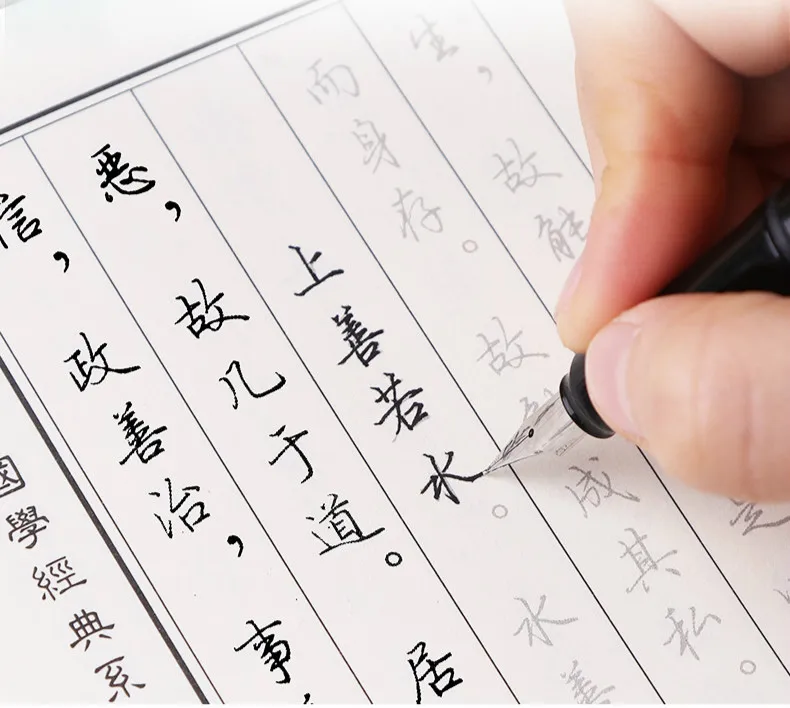 生，故能
是
而身存。故能成其私。
上善若水。水善
恶，故几于道。居
信，政善治，事
國學經典系